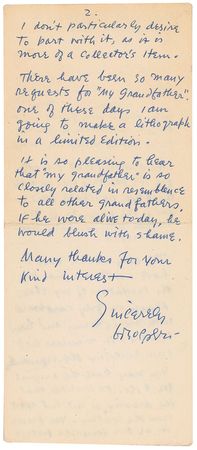 2.
I don't particularly desire
to part with it, as it is
more of a collector's item.
There have been so many
requests for "my grandfather".
one of these days I am
going to make a lithograph
in a limited edition.
It is so pleasing to hear
that "my grandfather" is so
closely related in resemblence
to all other grandfathers,
if he were alive today, he
would blush with shame.
Many thanks for your
kind interest
Sincerely